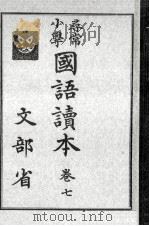 尋常
小學
國語讀本 卷七
文部省
mtoou.info